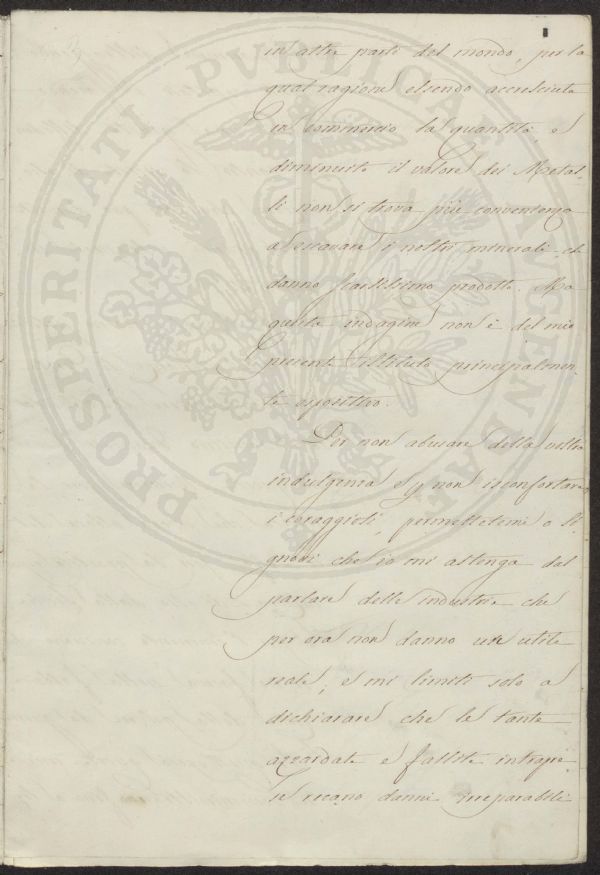 in altre parti del mondo, per la
qual ragione essendo accresciuta
in commercio la quantità, e
diminuito il valore dei Metal-
li non si trova più convenienza
a escavare i nostri minerali che
danno scarsissimo prodotto. Ma
questa indagine non è del mio
presente istituto principalmen-
te espositivo.
Per non abusare della vostra
indulgenza e p non isconfortare
i coraggiosi, permettetemi o Si-
gnori che io mi astenga dal
parlare delle industrie che
per ora non danno un utile
reale, e mi limiti solo a
dichiarare che le tante
azzardate e fallite intrapre-
se recano danni irreparabili
PROSPERITATI PVBLICAE AVGENDAE